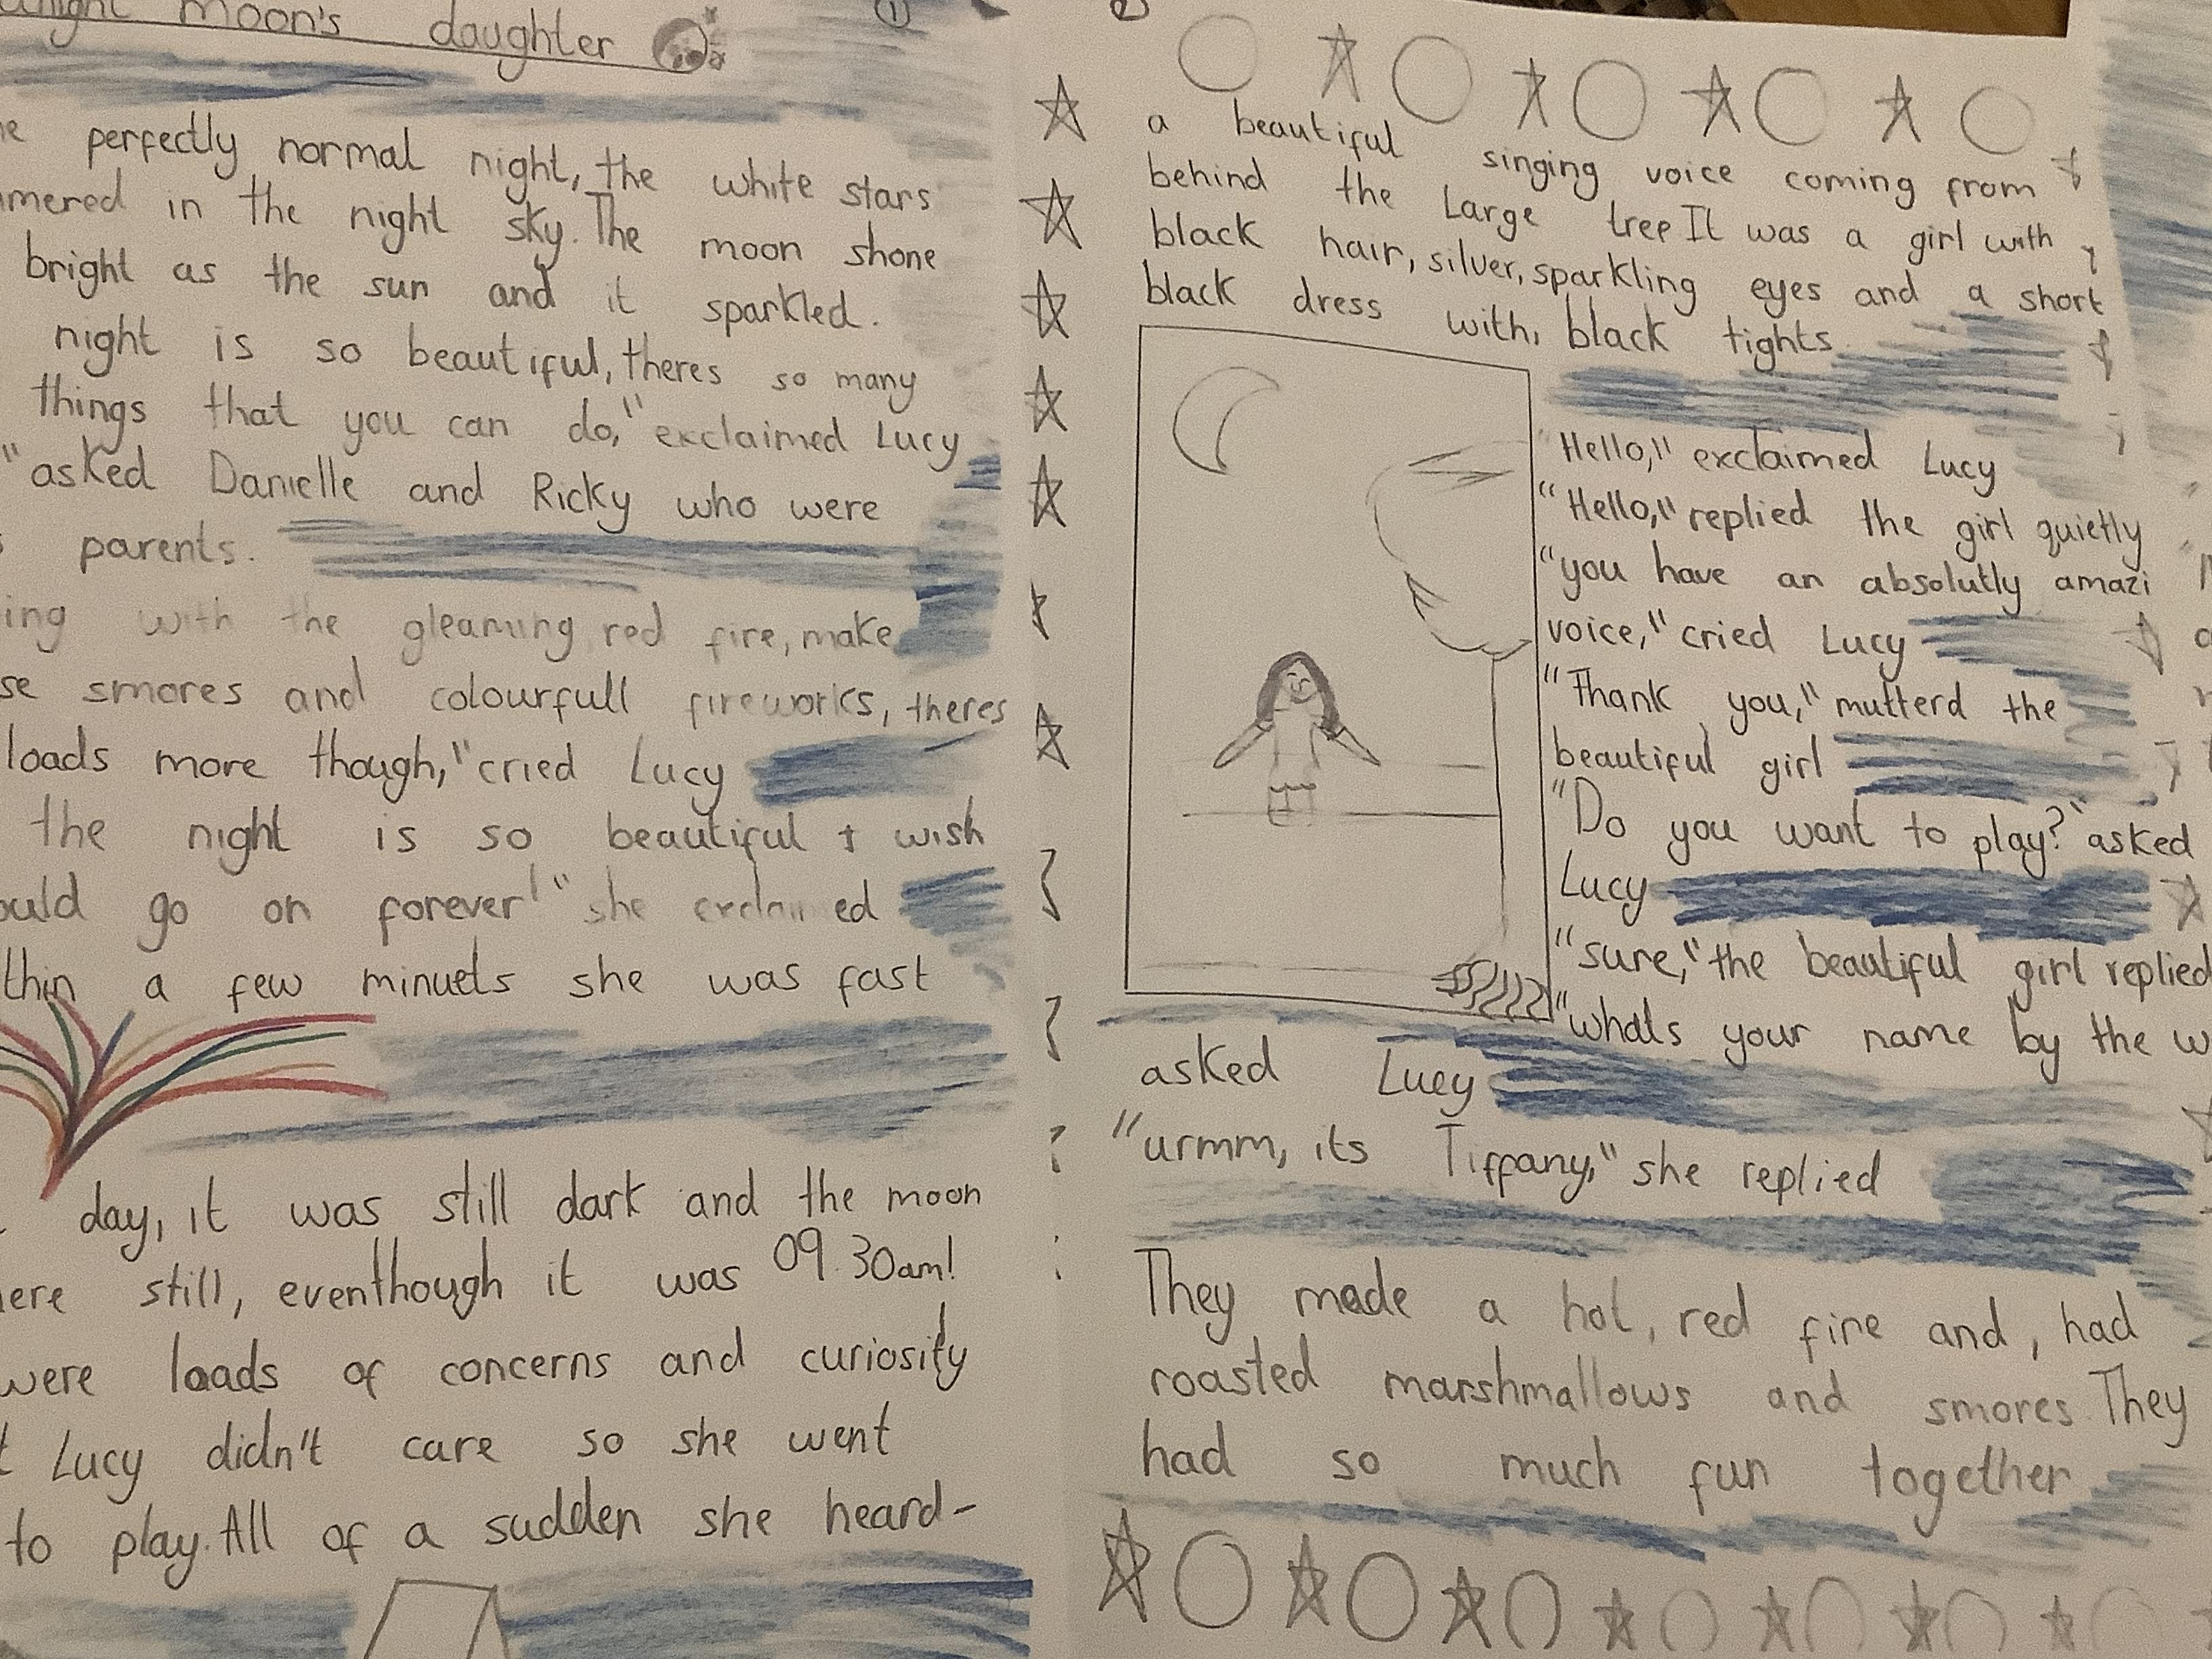 moon's daughter
①
perfectly normal night, the white stars
in the night sky. The moon shone
bright as the sun and it sparkled.
night is so beautiful, theres so many
things that you can do," exclaimed Lucy
" asked Danielle and Ricky who were
parents.
with the gleaming red fire, make
smores and colourfull fireworks, theres
loads more though," cried Lucy
the night is so beautiful I wish
go on forever!" she exclaimed
a few minuets she was fast
day, it was still dark and the moon
still, eventhough it was 09.30am!
were loads of concerns and curiosity
Lucy didn't care so she went
to play. All of a sudden she heard-
2
a beautiful singing voice coming from
behind the Large tree It was a girl with
black hair, silver, sparkling eyes and a short
black dress with, black tights
"Hello," exclaimed Lucy
"Hello," replied the girl quietly
"you have an absolutly amazi
voice," cried Lucy
"Thank you," mutterd the
beautiful girl
"Do you want to play?" asked
Lucy
"sure," the beautiful girl replied
"whats your name by the
asked Lucy
"urmm, its Tiffany," she replied
They made a hot, red fire and, had
roasted marshmallows and smores. They
had so much fun together